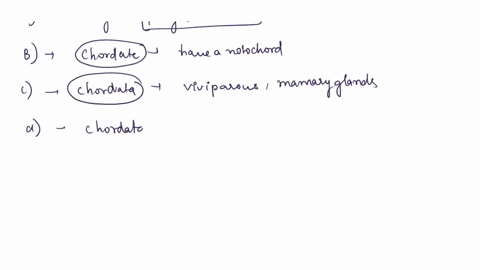 B) → chordate → have a notochord
c) → chordata → viviparous, mamary glands
d) - chordata